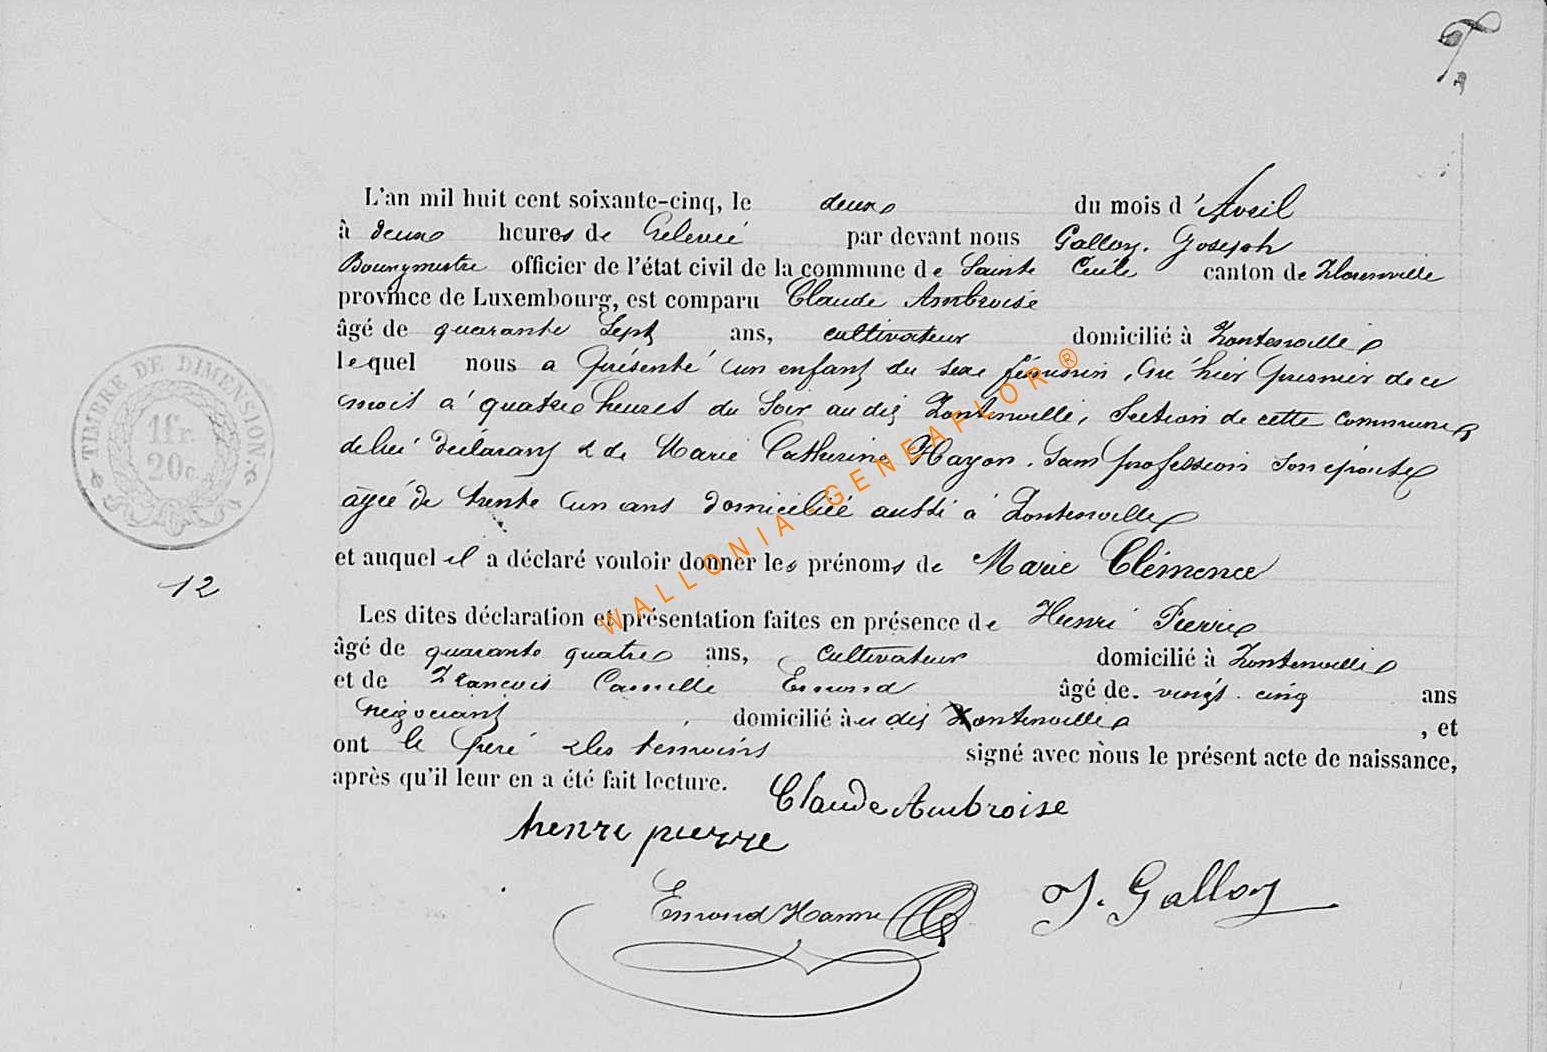 L'an mil huit cent soixante-cinq, le deux du mois d'Avril
à deux heures de Relevée par devant nous Galloy. Joseph
Bourgmestre officier de l'état civil de la commune de Sainte Cécile canton de Florenville
province de Luxembourg, est comparu Claude Ambroise
âgé de quarante Sept ans, cultivateur domicilié à Fontenoille
lequel nous a présenté un enfant du sexe féminin, né hier premier de ce
mois à quatre heures du Soir au dit Fontenoille, Section de cette commune
de lui déclarant & de Marie Catherine Hayon. Sans profession Son épouse
âgée de trente un ans domiciliée aussi à Fontenoille
et auquel il a déclaré vouloir donner les prénoms de Marie Clémence
12
Les dites déclaration et présentation faites en présence de Henri Pierre
âgé de quarante quatre ans, cultivateur domicilié à Fontenoille
et de François Camille Emond âgé de vingt cinq ans
négociant domicilié au dit Fontenoille, et
ont le père & les témoins signé avec nous le présent acte de naissance,
après qu'il leur en a été fait lecture.
Claude Ambroise
henri pierre
Emond
J. Galloy
TIMBRE DE DIMENSION.
1fr.
20c
WALLONIA - GENEAFLOR ®